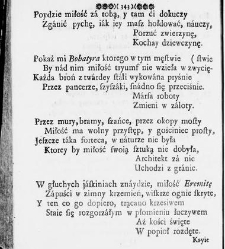 ( 143 )
Poydzie miłość zá tobą, y tam ci dokuczy
Zgánić pychę, iák iey masz hołdować, náuczy,
Porzuć zwierzynę,
Kochay dziewczynę.
Pokaż mi Bohatyra ktorego w tym męstwie ( stwie
By nád nim miłość tryumf nie wzięła w zwycię-
Każda broń z twárdey stáli wykowána pryśnie
Przez pancerze, szyszáki, snádno się przeciśnie.
Mársa roboty
Zmieni w záloty.
Przez mury, bramy, száńce, przez okopy mosty
Miłość ma wolny przystęp, y gościniec prosty,
Jeszcze táka forteca, w náturze nie była
Ktorey by miłość swoią sztuką nie dobyła,
Architekt zá nic
Uchodzi z gránic.
W głuchych iáskiniach znáydzie, miłość Eremitę
Zápuści w zimny krzemień, wskrze ognie skryte,
Y ten co go dopiero, trzcaąno krzesiwem
Stáie się rozgorzáłym w płomieniu łuczywem
Aż kości święte
W popioł rozdęte.
Kayie